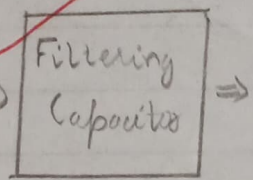 Filtering
Capacitor
⇒